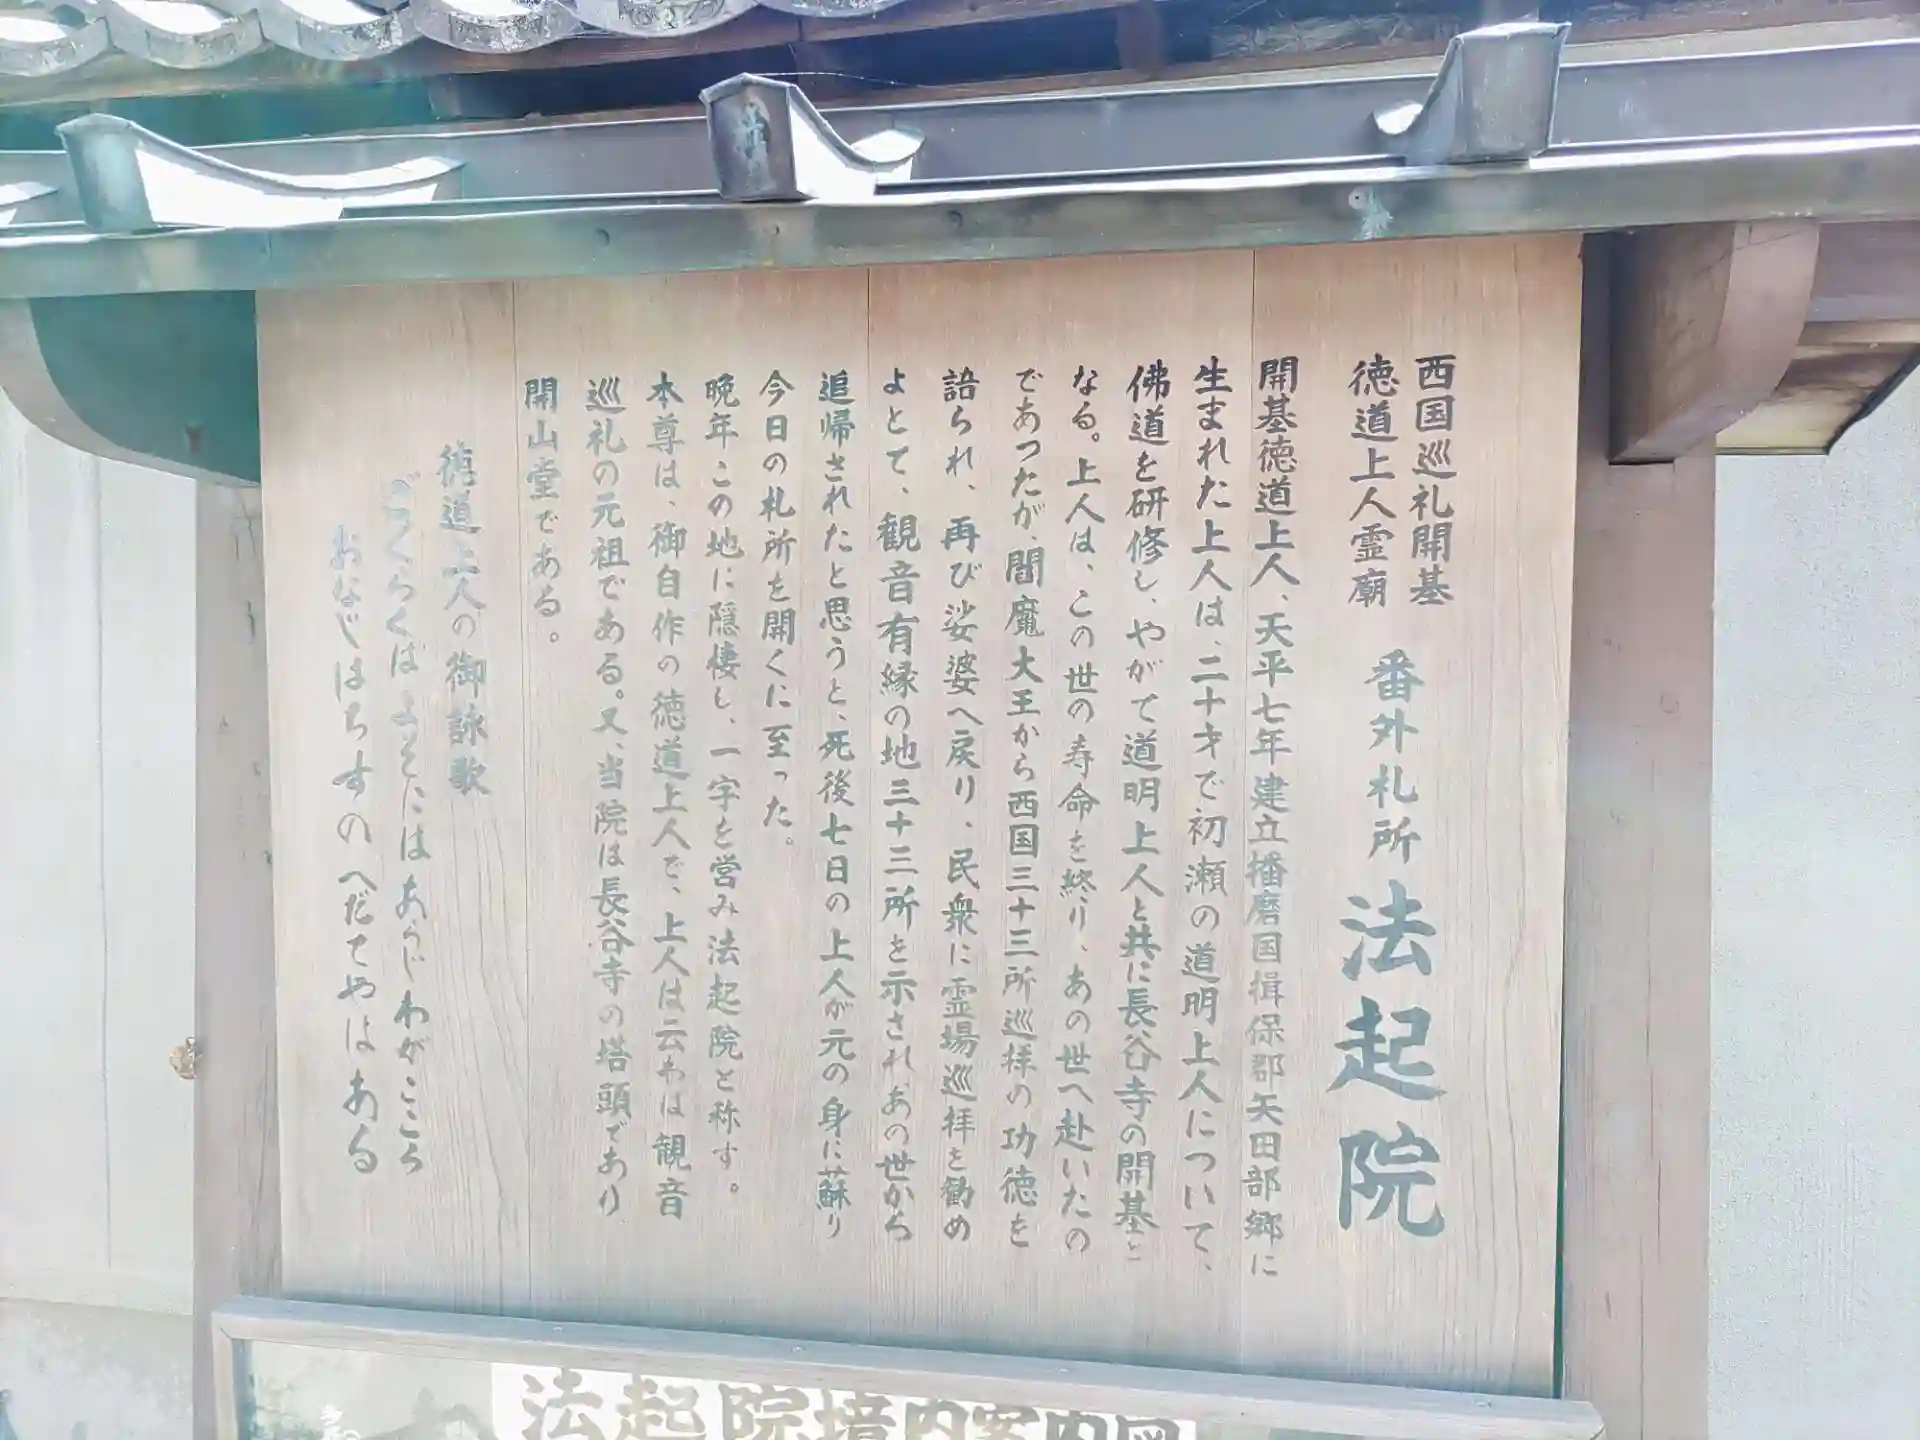 西国巡礼開基
徳道上人霊廟
番外札所 法起院
開基徳道上人、天平七年建立播磨国揖保郡矢田部郷に
生まれた上人は、二十才で初瀬の道明上人について、
佛道を研修し、やがて道明上人と共に長谷寺の開基と
なる。上人は、この世の寿命を終り、あの世へ赴いたの
であつたが、閻魔大王から西国三十三所巡拝の功徳を
語られ、再び娑婆へ戻り、民衆に霊場巡拝を勧め
よとて、観音有縁の地三十三所を示され、あの世から
追帰されたと思うと、死後七日の上人が元の身に蘇り
今日の札所を開くに至った。
晩年この地に隠棲し、一宇を営み法起院と称す。
本尊は、御自作の徳道上人で、上人は云わは観音
巡礼の元祖である。又、当院は長谷寺の塔頭であり
開山堂である。
徳道上人の御詠歌
ごくらくばよそにはあらじわがこころ
おなじはちすのへだてやはある
法起院境内案内図